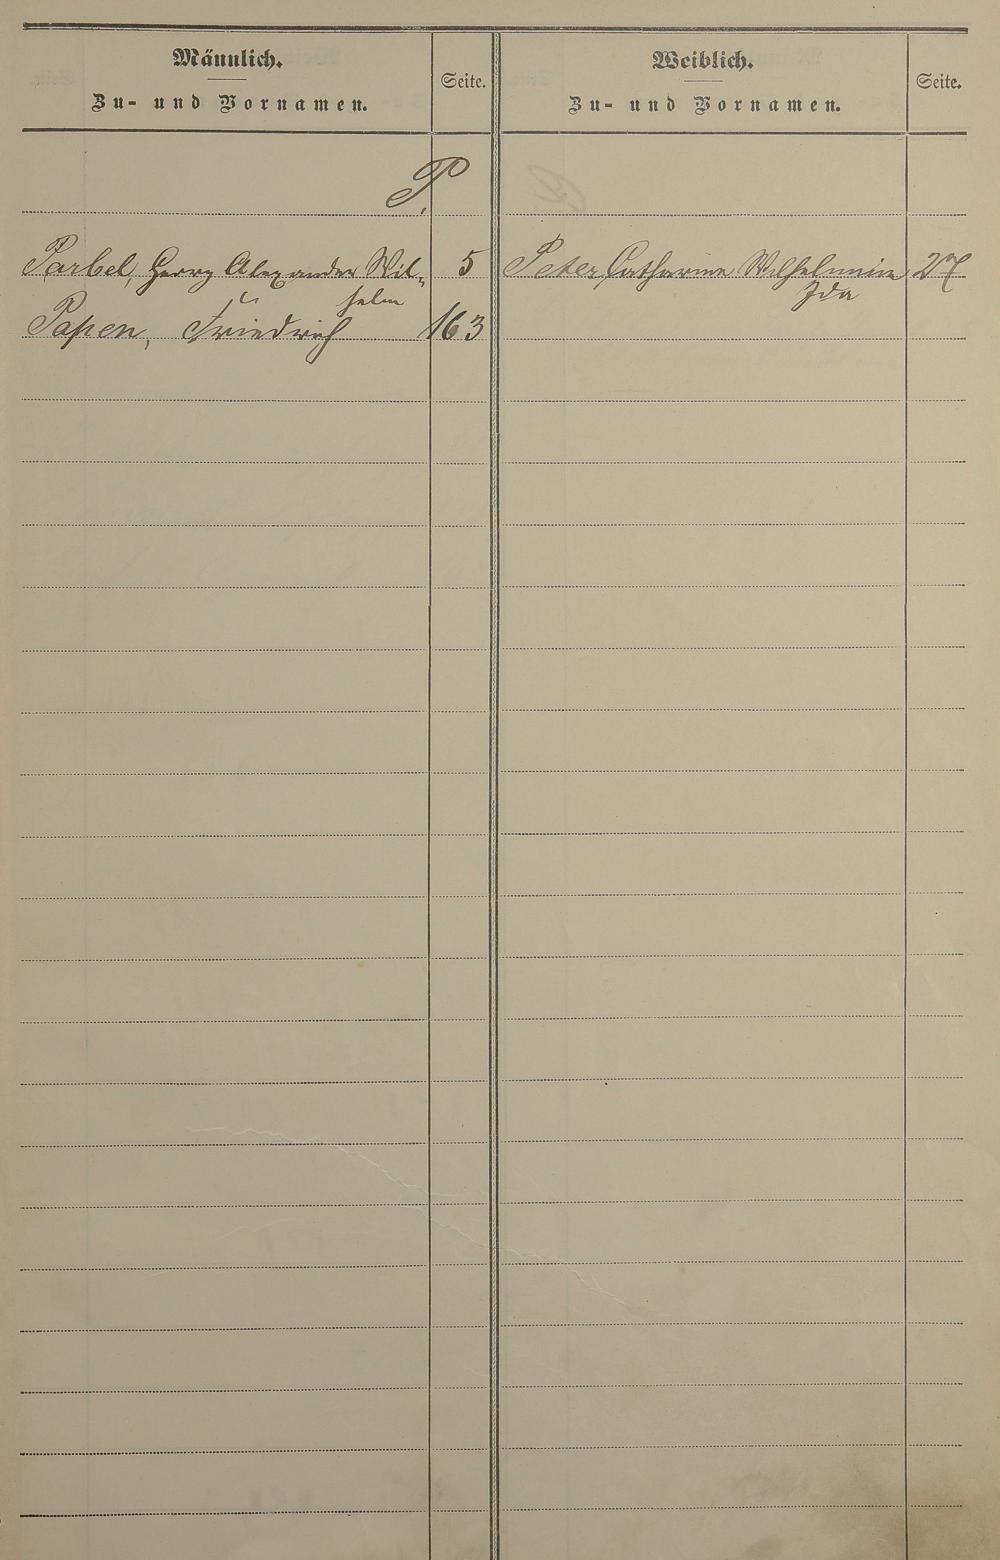 Männlich.
Zu- und Vornamen.
Seite.
Weiblich.
Zu- und Vornamen.
Seite.
P.
Parbel, Georg Alexander Wil- 5
helm
Papen, Friedrich 163
Peter, Catharine Wilhelmine 27
Ida